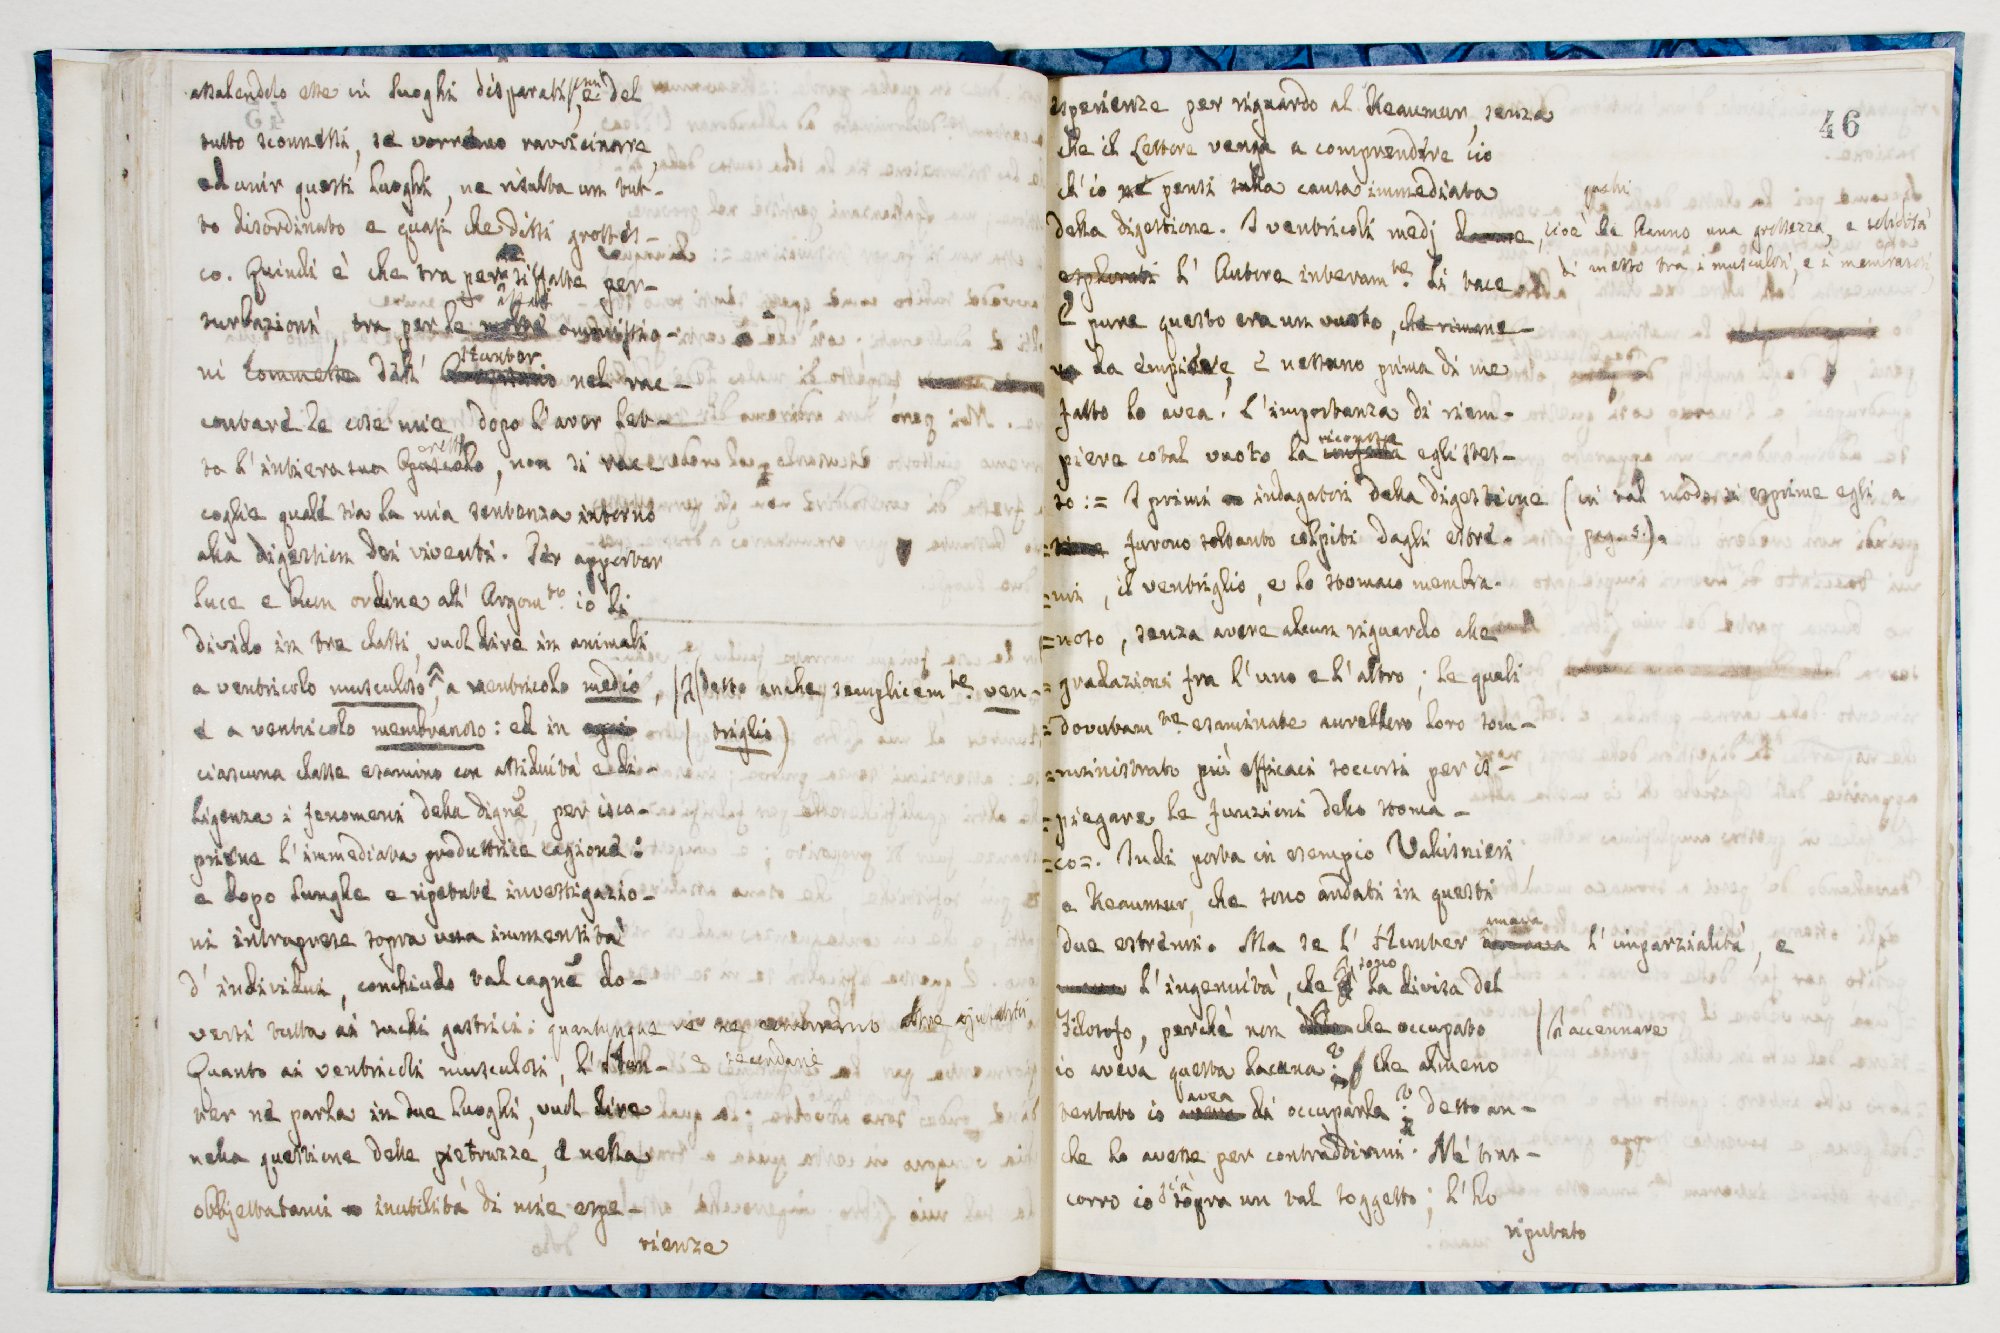 assalendolo esse in luoghi disparatissmi, e del
tutto sconnessi, se vorremo ravvicinare,
ed unir questi luoghi, ne risulta un tut-
to disordinato e quasi che dissi grottes-
co. Quindi è che tra per le siffatte per-
turbazioni tra per le omissio-
ni commesse dall' Hunter nel rac-
contare le cose mie, dopo l'aver let-
to l'intiera sua, non si rac-
coglie quale sia la mia sentenza intorno
alla digestion dei viventi. Per apportar
luce e buon ordine all' Argomto. io li
divido in tre classi, vuol dire in animali
a ventricolo muscoloso, a ventricolo medio, /2(detto anche semplicemte. ven-
e a ventricolo membranoso: ed in ogni / triglio)
ciascuna classe esamino con assiduità e di-
ligenza i fenomeni della digne, per isco-
prirne l'immediata produttrice cagione:
e dopo lunghe e ripetute investigazio-
ni intraprese sopra una immensità
d'individui, conchiudo tal cagne do-
versi tutta ai suchi gastrici: quantunque ve ne entrino altre ajutatrici,
e secondarie
Quanto ai ventricoli muscolosi, l'Hun-
ter ne parla in due luoghi, vuol dire
nella questione delle pietruzze, e nella
obbjettatami inutilità di mie espe-
rienze
46
sperienze per riguardo al Reaumur, senza
che il Lettore venga a comprendere ciò
ch'io ne pensi sulla causa immediata
della digestione. I ventricoli medj, cioè che hanno una grossezza, e solidità
di mezzo tra i muscolosi, e i membranosi,
l'Autore interamte. li tace.
E pure questo era un vuoto, che rimane-
va da empiere, e nessuno prima di me
fatto lo avea. L'importanza di riem-
piere cotal vuoto la riconosce egli stes-
so := I primi indagatori della digestione (in tal modo si esprime egli a
pag. 5.).
= furono soltanto colpiti dagli estre-
=mi, il ventriglio, e lo stomaco membra-
=noso, senza avere alcun riguardo alle
=gradazioni fra l'uno e l'altro; le quali
=dovutamte esaminate avrebbero loro som-
=ministrato più efficaci soccorsi per is-
=piegare le funzioni dello stoma-
=co=. Indi porta in esempio Valisnieri,
e Reaumur, che sono andati in questi
due estremi. Ma se l'Hunter amava l'imparzialità, e
l'ingenuità, che sono la divisa del
Filosofo, perchè non che occupato /h accennare
io aveva questa lacuna? che almeno
tentato io avea di occuparla? Detto an-
che lo avesse per contraddirmi. Nè tras-
corro io già sopra un tal soggetto; l'ho
riputato